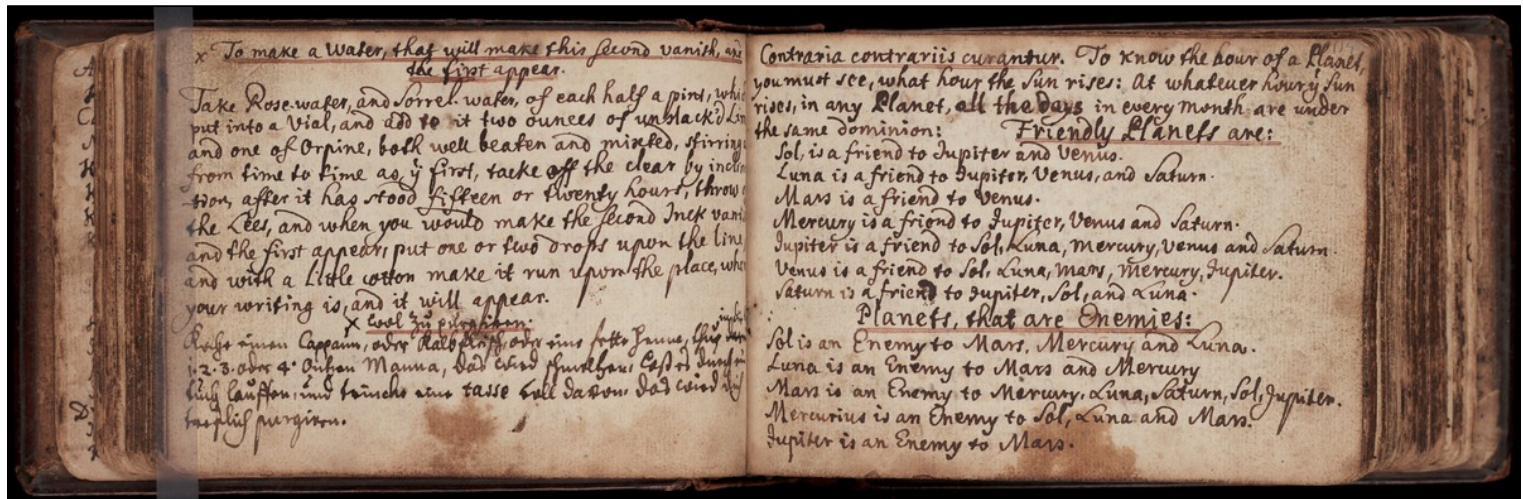 x To make a Water, that will make this second vanish, and
the first appear.
Take Rose-water, and Sorrel-water, of each half a pint, whi
put into a Vial, and add to it two ounces of unslack'd Lim
and one of Orpine, both well beaten and mixted, stirring
from time to time as ÿ first, tacke off the clear by inclin
tion, after it has stood fifteen or twenty hours, throw
the Lees, and when you would make the second Inck vani
and the first appear, put one or two drops upon the line
and with a Little cotton make it run upon the place, whe
your writing is, and it will appear.
x wol zu purgiren.
einen Cappaun, oder Kalbfleisch, oder eine fette Henne, thu
1. 2. 3. oder 4. Untzen Manna, das wird schmeltzen: Lass es durch ein
tuch lauffen, und trincke eine tasse voll davon: das wird dich
trefflich purgiren.
Contraria contrariis curantur. To know the hour of a Planet,
you must see, what hour the Sun rises: At whatever hour ÿ Sun
rises, in any Planet, all the days in every month are under
the same dominion: Friendly Planets are:
Sol, is a friend to Jupiter and Venus.
Luna is a friend to Jupiter, Venus, and Saturn.
Mars is a friend to Venus.
Mercury is a friend to Jupiter, Venus and Saturn.
Jupiter is a friend to Sol, Luna, Mercury, Venus and Saturn.
Venus is a friend to Sol, Luna, Mars, Mercury, Jupiter.
Saturn is a friend to Jupiter, Sol, and Luna.
Planets, that are Enemies:
Sol is an Enemy to Mars, Mercury and Luna.
Luna is an Enemy to Mars and Mercury
Mars is an Enemy to Mercury, Luna, Saturn, Sol, Jupiter.
Mercurius is an Enemy to Sol, Luna and Mars.
Jupiter is an Enemy to Mars.